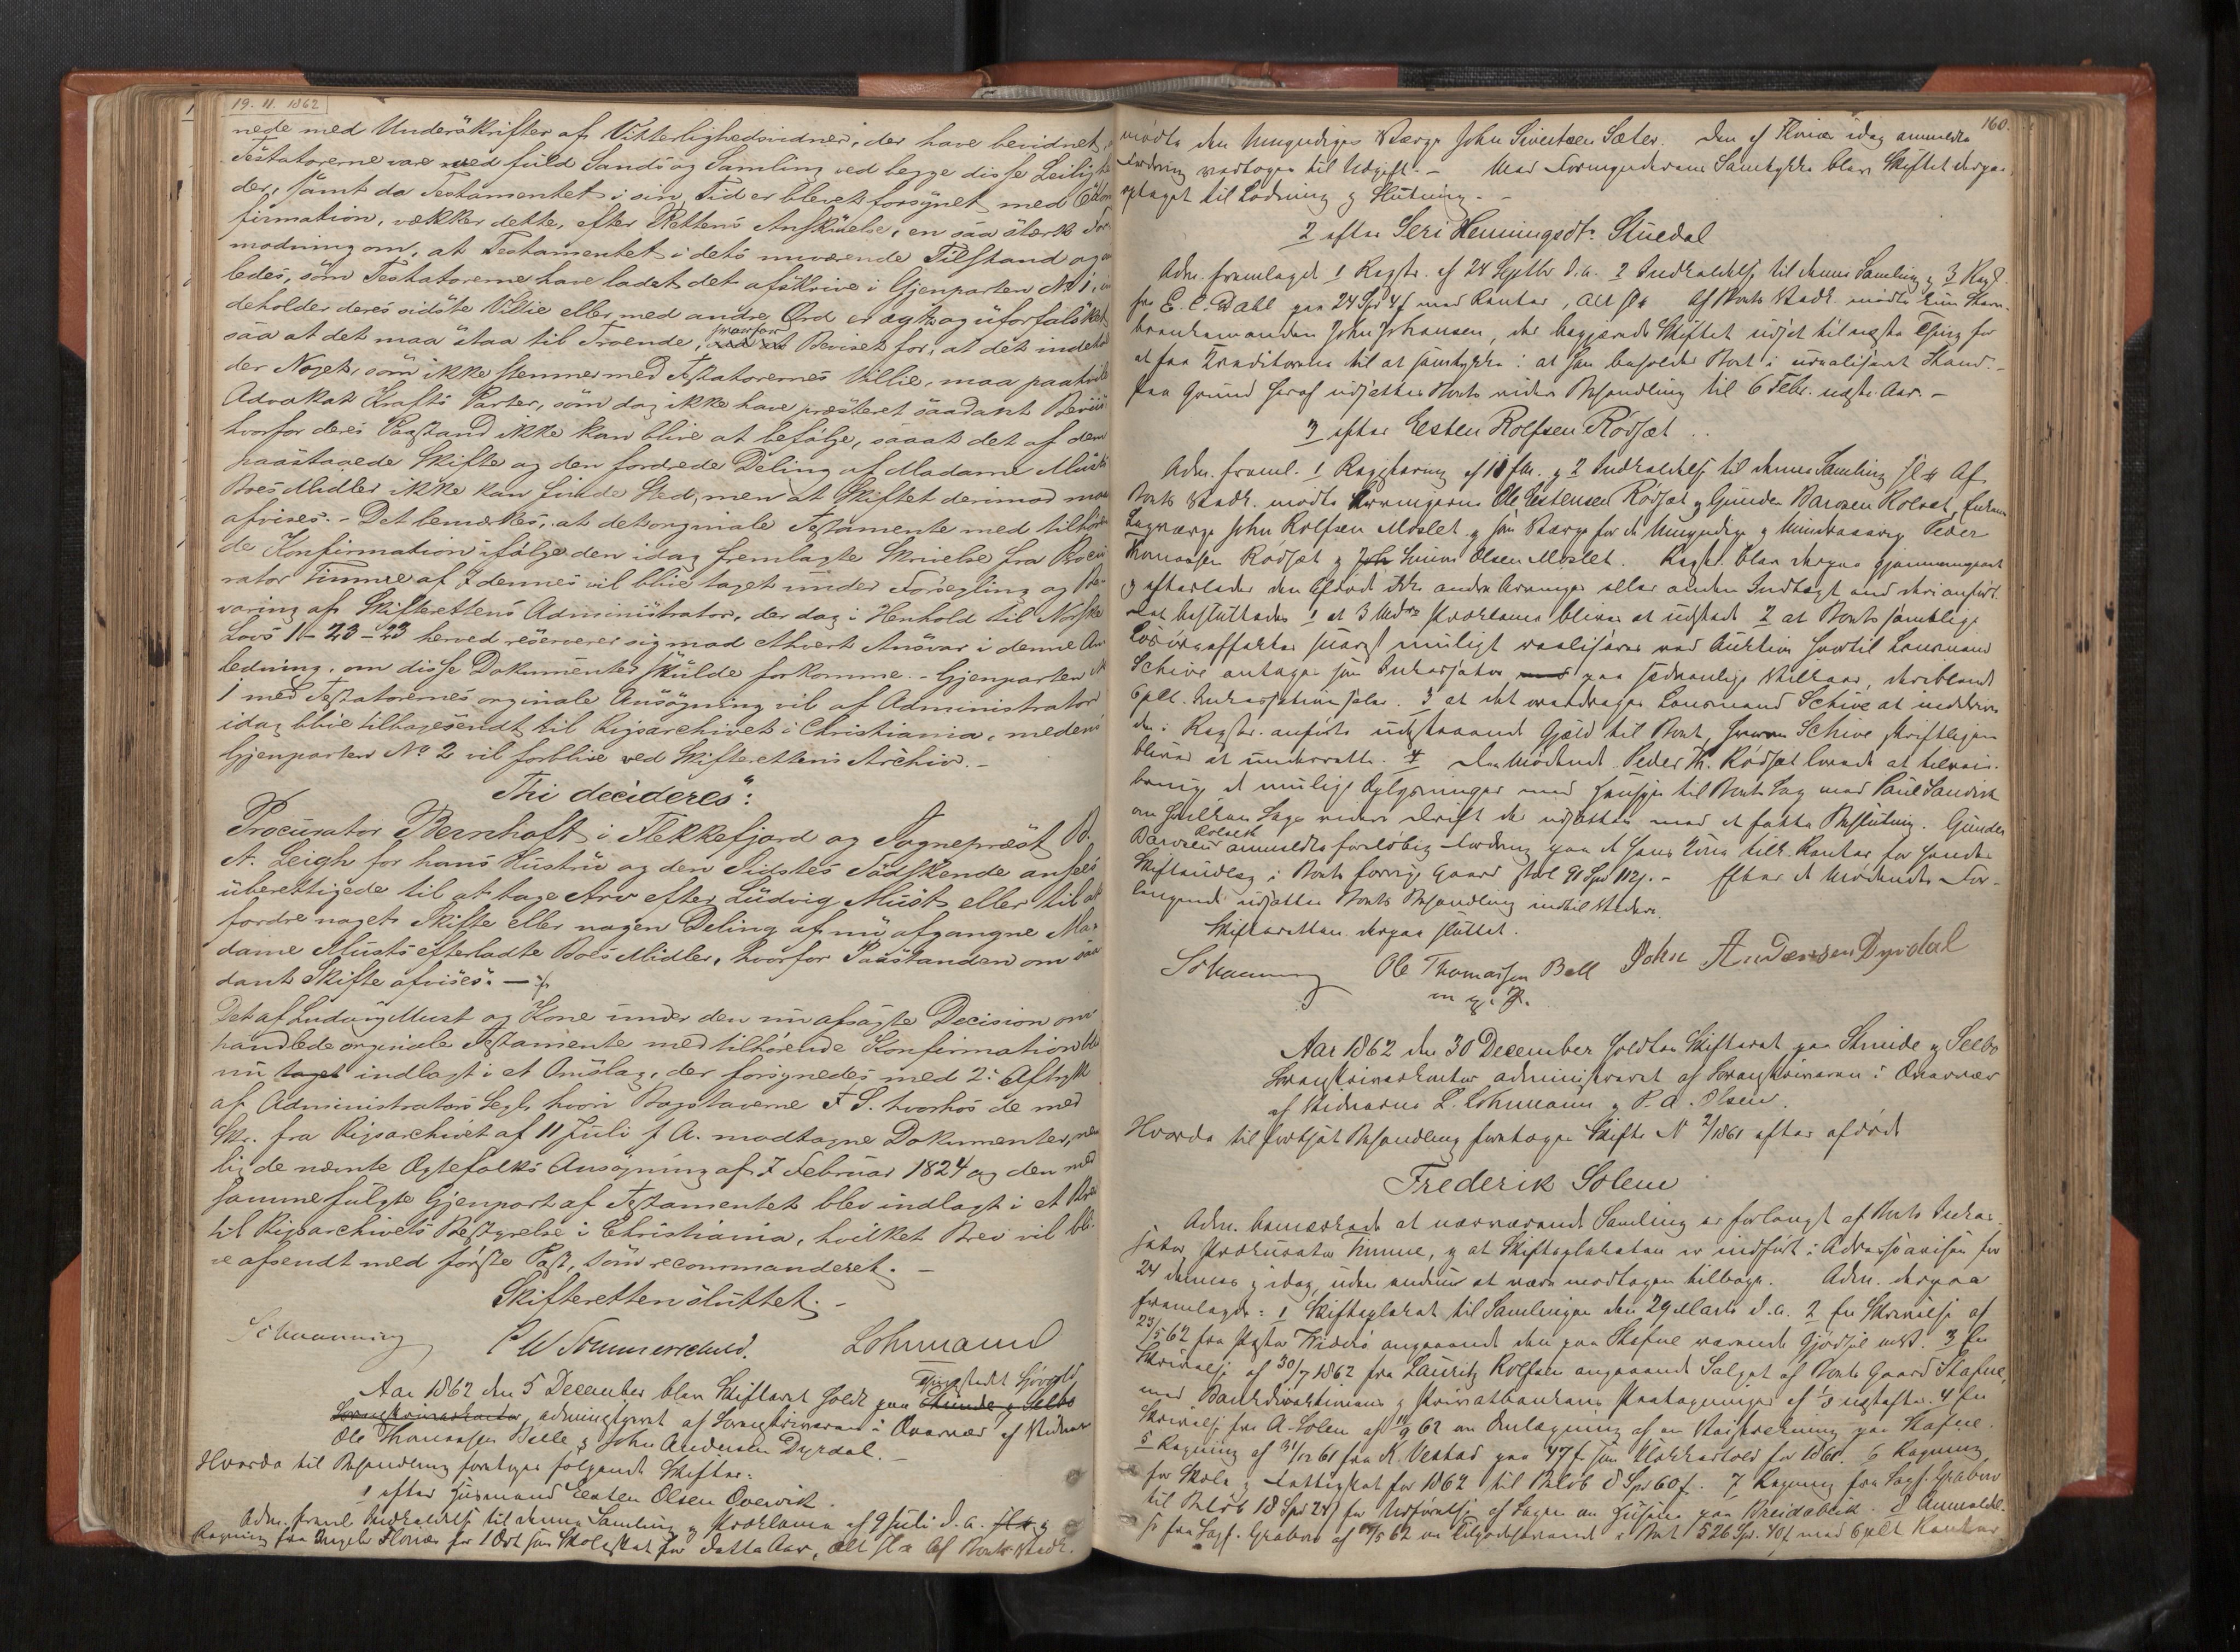 19. 11. 1862
nede med Underskrifter af Vitterlighedsvidner, der have bevidnet, at
Testatorerne vare ved fuld Sands og Samling ved begge disse Leilighe
der, samt da Testamentet i sin Tid er blevet forsynet med Con
firmation, vækker dette, efter Rettens Anskuelse, en saa stærk For
modning om, at Testamentet i dets nuværende Tilstand og
ledes, som Testatorerne have ladet det afskrive i Gjenparten No 1, in
deholder deres sidste Villie eller med andre Ord er ægte og uforfalsket
saa at det maa staa til Troende, hvorfor Beviset for, at det indehol
der Noget, som ikke stemmer med Testatorernes Villie, maa paahvile
Advokat Krafts Parter, som dog ikke have præsteret saadant Beviis
hvorfor deres Paastand ikke kan blive at befølge, saaat det af dem
paastaaede Skifte og den fordrede Deling af Madame Musts
Boes Midler ikke kan finde Sted, men at Skiftet derimod maa
afvises. - Det bemærkes, at det orginale Testamente med tilhøren
de Konfirmation ifølge den idag fremlagte Skrivelse fra Procu
rator Timme af 7 dennes vil blive taget under Forsegling og Be
varing af Skifterettens Administrator, der dog i Henhold til Norske
Lovs 1-23-23 herved reserverer sig mod ethvert Ansvar i denne An
ledning, om disse Dokumenter skulde forkomme. - Gjenparten No
1 med Testatorernes orginale Ansøgning vil af Administrator
idag blive tilbagesendt til Rigsarchivet i Christiania, medens
Gjenparten No 2 vil forblive ved Skifterettens Archiv. -
Thi decideres":
Procurator Bernhoft i Flekkefjord og Sognepræst B.
A. Leigh for hans Hustru og den Sidstes Sødskende ansees
uberettigede til at tage Arv efter Ludvig Must eller til at
fordre noget Skifte eller nogen Deling af nu afgangne Ma-
dame Musts efterladte Boes Midler, hvorfor Paastanden om saa
dant Skifte afvises". -
Det af Ludvig Must og Kone under den nu afsagte Decision om
handlede orginale Testamente med tilhørende Konfirmation blev
nu indlagt i et Omslag, der forsynedes med 2de Aftryk
af Administrators Segl, hvori Bogstaverne F S. hvorhos de med
Skr. fra Rigsarchivet af 11 Juli f A. modtagne Dokumenter, nem
lig de nævnte Ægtefolks Ansøgning af 7 Februar 1824 og den med
samme fulgte Gjenpart af Testamentet blev indlagt i et Brev
til Rigsarchivets Bestyrelse i Christiania, hvilket Brev vil bli
ve afsendt med første Post, som recommanderet. -
Skifteretten sluttet. -
Lohmann
Aar 1862 den 5 December blev Skifteret holdt paa Thingstedet
Sorenskriverkontor, administreret af Sorenskriveren i Overvær af Vidner
Ole Thomassen Belle og John Andersen Dyrdal. -
Hvorda til Behandling foretoges følgende Skifter:
1 efter Husmand Esten Olsen Overvik.
Adm. freml. Indkaldelse til denne Samling og Proklama af 9 Juli d. a.
Regning fra Florian for 1 Ort som Skoleskat for dette Aar, alt
160.
mødte den Umyndiges Værge John Sivertsen Sæter. Den af Florian idag anmeldte
Fordring vedtoges til Udgift. - Med Formynderens Samtykke blev Skiftet derpaa
optaget til Lodning og Slutning. -
2 efter Seri Henningsdtr Stuedal
Adm. fremlagde 1 Regstr. af 24 Septbr d.a. 2 Indkaldelse til denne Samling og 3 Regn.
fra E. C. Dahl paa 24 Spd 4 f med Renter,
John Johansen, der begjærede Skiftet udsat til næste Thing for
at faa Kreditorerne til at samtykke i at han beholder Boet i urealiseret Stand. -
Paa Grund heraf udsattes Boets videre Behandling til 6 Febr. næste Aar. -
3 efter Esten Rolfsen Rødsæt
Adm. freml. 1 Registrering af og 2 Indkaldelse til denne Samling Af
Boets Vedk. mødte Arvingerne Ole Estensen Rødsæt og Gunder Baroen Kolset, Enkens
Laugværge John Rolfsen Moslet og som Værge for de Umyndige og Mindreaarig Peder
Thomassen Rødsæt og Simen Olsen Moslet. Regstr. blev derpaa gjennemgaaet
og efterlader den Afdøde ikke andre Arvinger eller anden Indtægt end deri anført.
Det besluttedes 1 at 3 Mdrs Proklama bliver at udstede 2 at Boets samtlige
Løsøreeffekter snarest muligt realiseres ved Auktion hvortil Lensmand
Schive antages som Inkassator paa sædvanlige Vilkaar, deriblandt
6 pCt. Inkassationssalær. 3 at det overdrages Lensmand Schive at inddrive
den i Regstr. anførte udestaaende Gjæld til Boet, hvorom Schive skriftligen
bliver at underrette. 4 Den Mødende Peder Th. Rødsæt lovede at tilveie-
bringe de mulige Oplysninger med Hensyn til Boets Sag mod Paul Sandvik
om hvilken Sags videre Drift der udsættes med at fatte Beslutning. Gunder
Baroen Kolset anmeldte foreløbig Fordring paa
Skifteudlæg i Boets forrige Gaard stor 91 Spd 112 s. - Efter de Mødendes For-
langende udsattes Boets Behandling indtil Videre.
Skifteretten derpaa sluttet.
Ole Thomassen Bell John Andersen Dyrdal
m. p. P.
Aar 1862 den 30 December holdtes Skifteret paa Strinde og Selbo
Sorenskriverkontor administreret af Sorenskriveren i Overvær
af Vidnerne L. Lohmann og P. A. Olsen.
Hvorda til fortsat Behandling foretoges Skifte No 2/1861 efter afdøde
Frederik Solem
Adm. bemærkede at nærværende Samling er forlangt af Boets Inkas-
sator, Prokurator Timme, og at Skifteplakaten er indført i Adresseavisen for
24 dennes og idag, uden endnu at være modtagen tilbage. Adm. derpaa
fremlagde: 1 Skifteplakat til Samlingen den 29 Marts d. a. 2 En Skrivelse af
23/5 62 fra angaaende den paa Stafne værende Gjødsel m.v. 3 En
Skrivelse af 30/7 1862 fra Lauritz Rolfsen angaaende Salget af Boets Gaard Stafne,
med Bankdirektionens og Privatbankens Paategninger af 4 En
Skrivelse fra A. Solem af 62 om Omlægning af en Veistrækning paa Stafne.
5 Regning af 31/12 61 fra K. Vestad paa 47 f. som for 1860. 6 Regning
for Skole og Fattigskat for 1862 til Beløb 8 Spd 60 f. 7 Regning fra Sagf. Grabow
til Beløb 18 Spd 24 f for Udførelse af Sagen om Husene paa Breidablik. 8 Anmeldel-
se fra Sagf. Grabow af 62 om Tilgodehavende i Boet 526 Spd. 40 f. med 6 pCt Renter